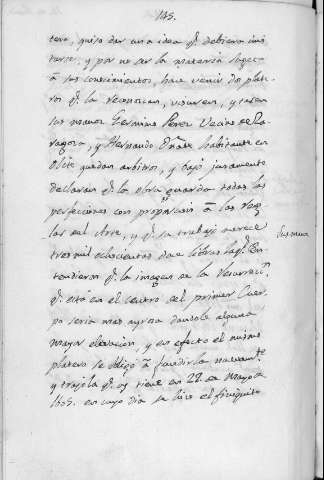 145.
tero, quiso dar una idea q.e debiera imi
tarse, y por no ser la materia sugeta
à sus conocimientos, hace venir dos plate
ros q.e la reconozcan, y tasen
sus manos Geronimo Perez Vecino de Za-
ragoza, y Hernando Oñate habitante en
Olite quedan arbitros, y bajo juramento
declaran q.e la obra guarda todas las
perfecciones con proporcion à las Reg
las del Arte, y q.e su trabajo merece
tres mil ochocientas doce libras En-
tendieron q.e la imagen de la Resurrecc.n
q.e está en el centro del primer Cuer
po seria mas ayrosa dandole alguna
mayor elevacion, y en efecto el mismo
platero se obligó à fundirla nuevam.te
y trajo la q.e oy tiene en 22. de Mayo de
1605. en cuyo dia se hizo el finiquito